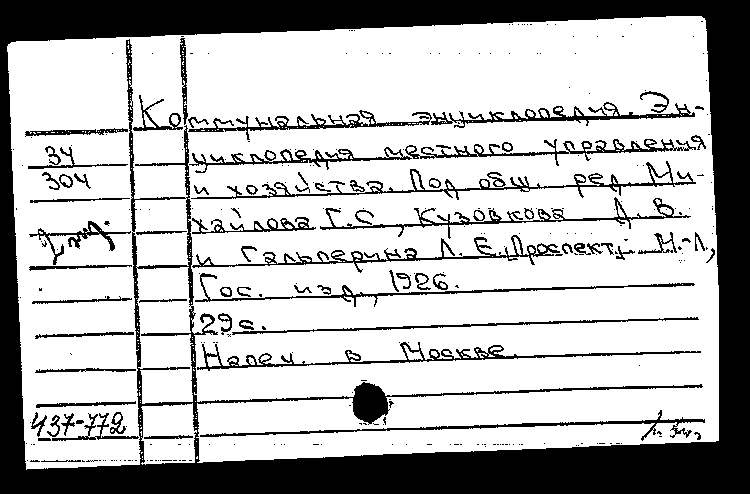 Коммунальная энциклопедия. Эн-
34 циклопедия местного управления
304 и хозяйства. Под общ. ред. Ми-
хайлова Г.С., Кузовкова Д.В.
и Гальперина Л.Е. [Проспект]. М.-Л.,
Гос. изд., 1926.
29с.
Напеч. в Москве.
437-772